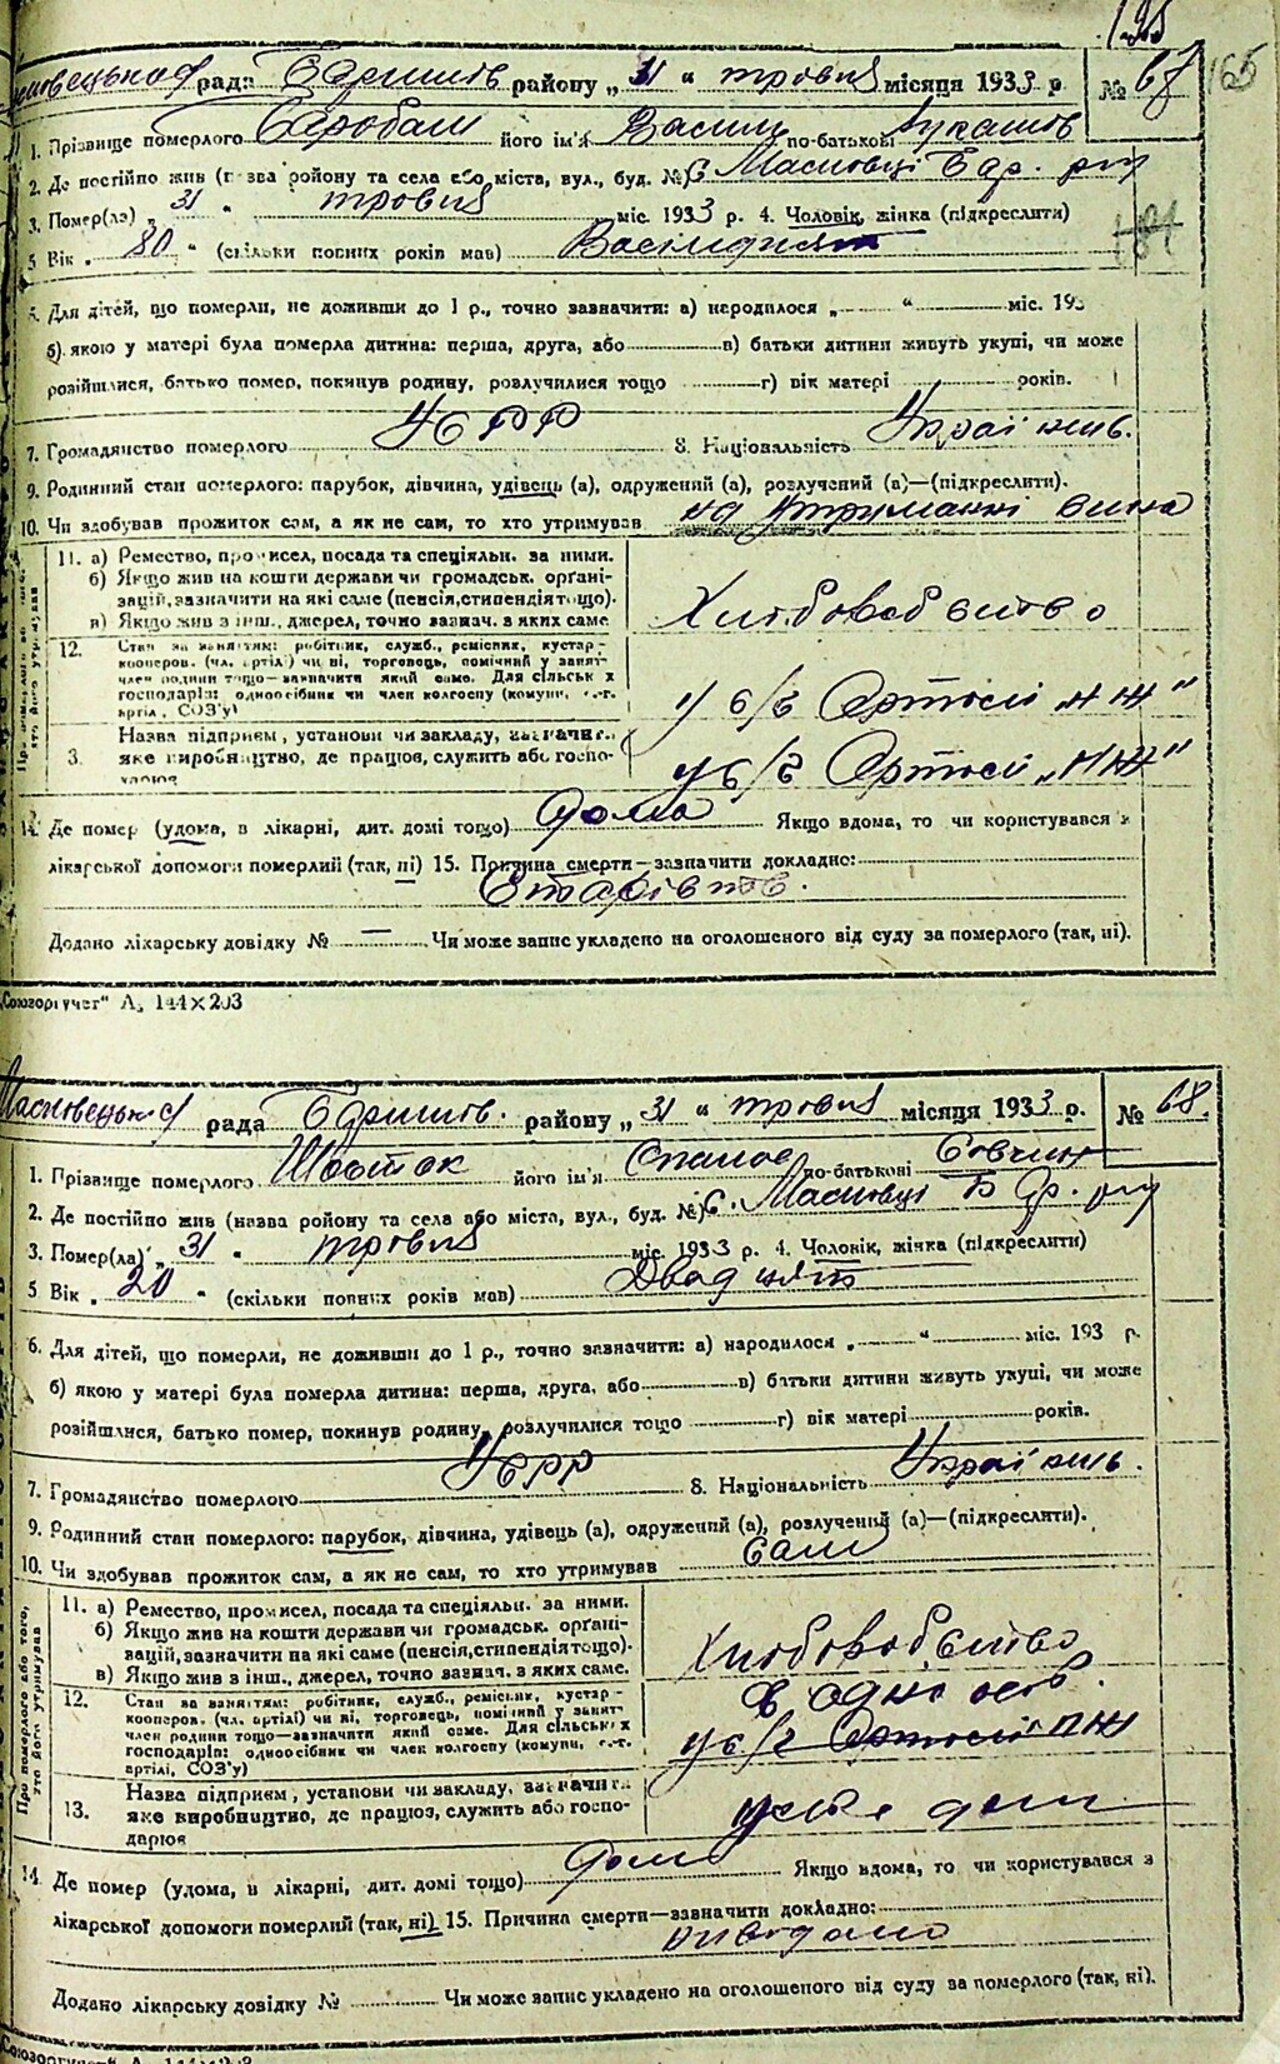 рада району „ 31 “ травня місяця 1933 р. № 67
165
1. Прізвище померлого його ім'я Василь по-батькові Лукашів
2. Де постійно жив (назва району та села або міста, вул., буд. №) С Масиовці Єдр. р-ну
3. Помер(ла) „ 31 “ травня міс. 1933 р. 4. Чоловік, жінка (підкреслити)
5 Вік „ 80 “ (скільки повних років мав) Васімдисят
6. Для дітей, що померли, не доживши до 1 р., точно зазначити: а) народилося „ “ міс. 193
б) якою у матері була померла дитина: перша, друга, або в) батьки дитини живуть укупі, чи може
розійшлися, батько помер, покинув родину, розлучилися тощо г) вік матері років.
7. Громадянство померлого УСРР 8. Національність Україньць.
9. Родинний стан померлого: парубок, дівчина, удівець (а), одружений (а), розлучений (а)—(підкреслити).
10. Чи здобував прожиток сам, а як не сам, то хто утримував на утриманні сина
11. а) Ремество, промисел, посада та спеціяльн. за ними.
б) Якщо жив на кошти держави чи громадськ. орґані-
зацій, зазначити на які саме (пенсія, стипендія тощо).
в) Якщо жив з інш., джерел, точно зазнач. з яких саме
Хліборобство
12. Стан за заняттям: робітник, служб., ремісник, кустар-
кооперов. (чл. артілі) чи ні, торговець, помічний у занят-
член родини тощо—зазначити який саме. Для сільськ х
господарів: одноосібник чи член колгоспу (комуни, с.-г.
артіл, СОЗ'у)
у с/г Артілі „НЖ“
3. Назва підприєм, установи чи закладу, зазначит.
яке виробництво, де працює, служить або госпо-
дарює
у с/г Артілі „НЖ“
14. Де помер (удома, в лікарні, дит. домі тощо) дома Якщо вдома, то чи користувався з
лікарської допомоги померлий (так, ні) 15. Причина смерти—зазначити докладно:
Старість.
Додано лікарську довідку № — Чи може запис укладено на оголошеного від суду за померлого (так, ні).
„Союзоргучет“ А₅ 144×203
рада району „ 31 “ травня місяця 1933 р. № 68.
1. Прізвище померлого Шостак його ім'я Опанас по-батькові
2. Де постійно жив (назва району та села або міста, вул., буд. №) С. Масиовці Б Др. р-ну
3. Помер(ла) „ 31 “ травня міс. 1933 р. 4. Чоловік, жінка (підкреслити)
5 Вік „ 20 “ (скільки повних років мав) Двадцять
6. Для дітей, що померли, не доживши до 1 р., точно зазначити: а) народилося „ “ міс. 193 р.
б) якою у матері була померла дитина: перша, друга, або в) батьки дитини живуть укупі, чи може
розійшлися, батько помер, покинув родину, розлучилися тощо г) вік матері років.
7. Громадянство померлого УСРР 8. Національність Україньць.
9. Родинний стан померлого: парубок, дівчина, удівець (а), одружений (а), розлучений (а)—(підкреслити).
10. Чи здобував прожиток сам, а як не сам, то хто утримував Сам
Про померлого або того,
хто його утримував
11. а) Ремество, промисел, посада та спеціяльн. за ними.
б) Якщо жив на кошти держави чи громадськ. орґані-
зацій, зазначити на які саме (пенсія, стипендія тощо).
в) Якщо жив з інш., джерел, точно зазнач. з яких саме.
Хліборобство
12. Стан за заняттям: робітник, служб., ремісник, кустар-
кооперов. (чл. артілі) чи ні, торговець, помічний у занят-
член родини тощо—зазначити який саме. Для сільськ х
господарів: одноосібник чи член колгоспу (комуни, с.-г.
артілі, СОЗ'у)
у с/г Артілі НЖ
13. Назва підприєм, установи чи закладу, зазначити
яке виробництво, де працює, служить або госпо-
дарює
14. Де помер (удома, в лікарні, дит. домі тощо) дома Якщо вдома, то чи користувався з
лікарської допомоги померлий (так, ні) 15. Причина смерти—зазначити докладно:
Додано лікарську довідку № Чи може запис укладено на оголошеного від суду за померлого (так, ні).
„Союзоргучет“ А₅ 144×203